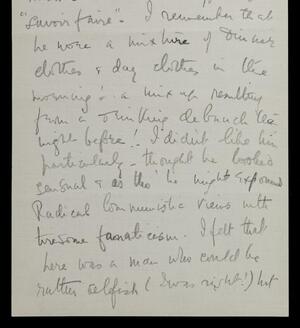 "savoir faire". I remember that
he wore a mixture of dinner
clothes & day clothes in the
morning! a mix up resulting
from a drinking debauch the
night before!! I didn't like him
particularly – thought he looked
sensual & as tho' he might expound
Radical Communistic views with
tiresome fanaticism. I felt that
here was a man who could be
rather selfish (I was right!) but